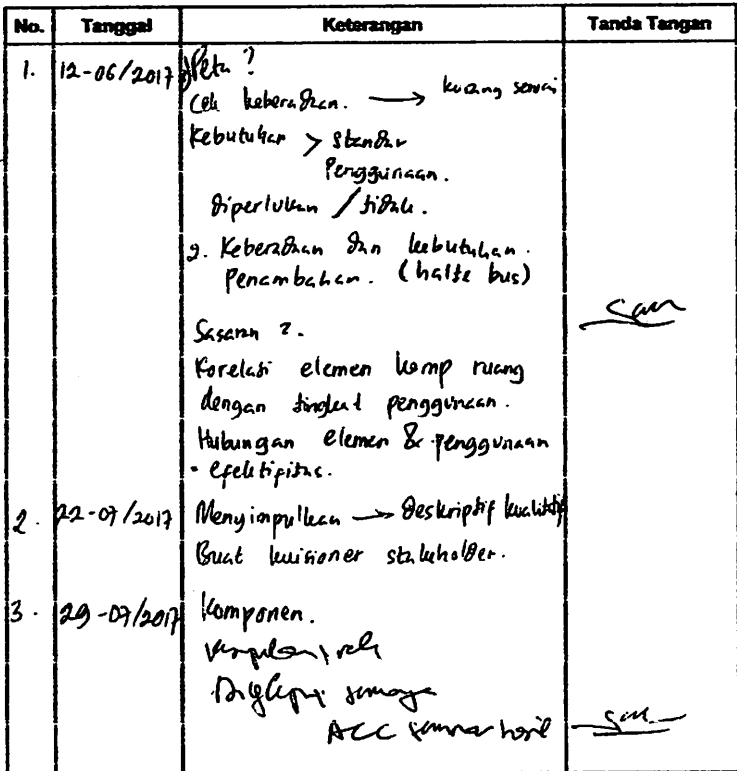 No. Tanggal Keterangan Tanda Tangan
1. 12-06/2017 1) Peta ?
Cek keberadaan. → kurang sesuai
Kebutuhan > Standar
Penggunaan.
diperlukan / tidak.
2. Keberadaan dan kebutuhan.
Penambahan. (halte bus)
Sasaran 2.
Korelasi elemen komp ruang
dengan tingkat penggunaan.
Hubungan elemen & penggunaan
- efektifitas.
2. 22-07/2017 Menyimpulkan → Deskriptif kualitatif
Buat kuisioner stakeholder.
3. 29-07/2017 Komponen.
semuanya
ACC seminar hasil